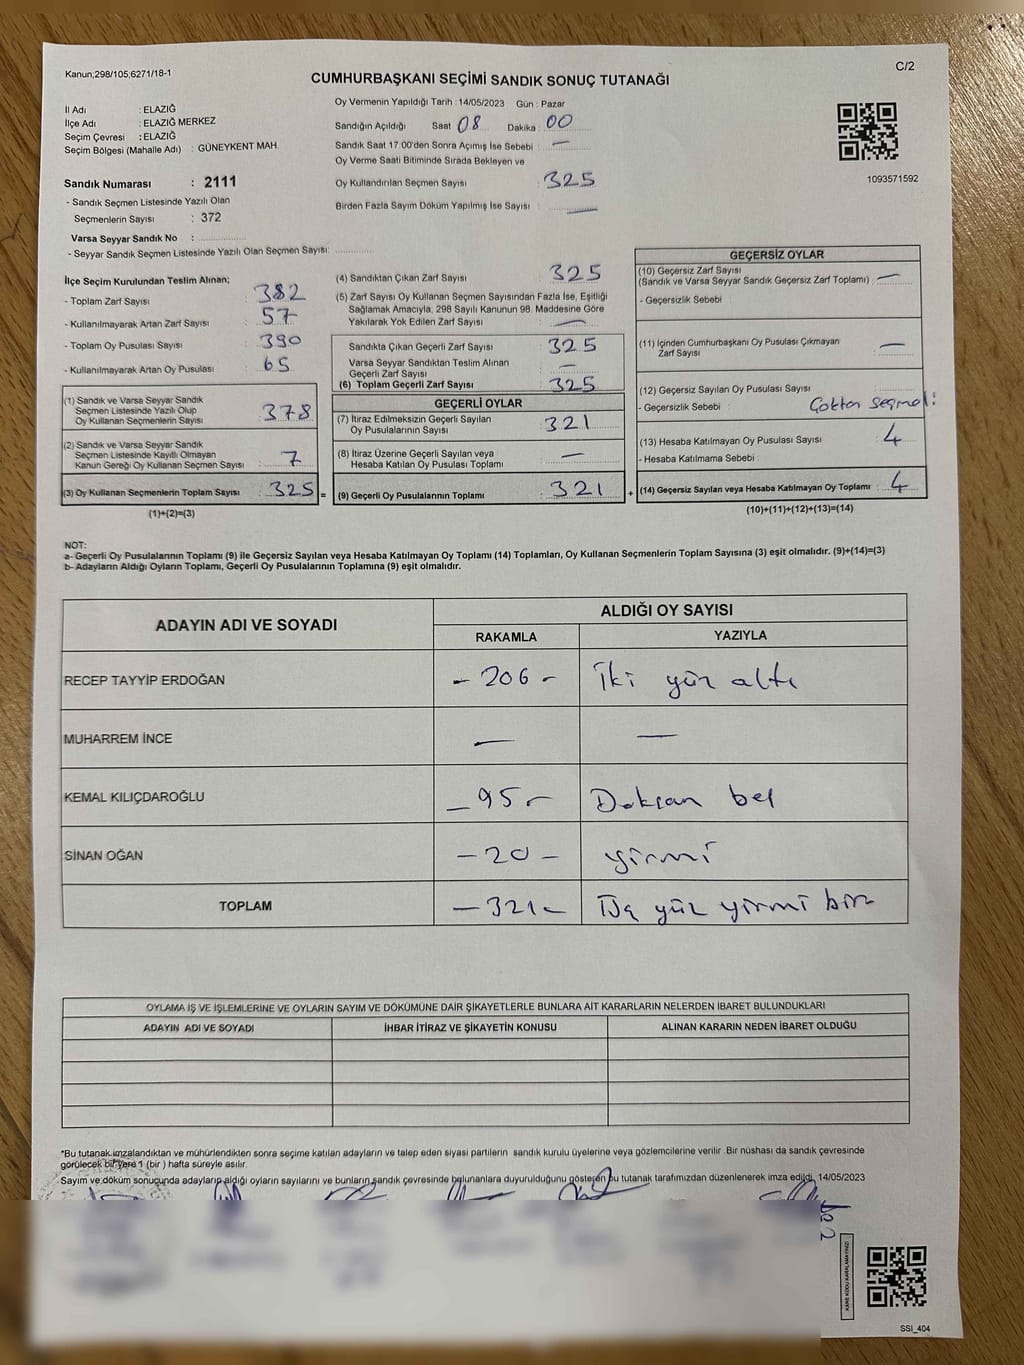 Kanun;298/105;6271/18-1
C/2
CUMHURBAŞKANI SEÇİMİ SANDIK SONUÇ TUTANAĞI
İl Adı : ELAZIĞ
İlçe Adı : ELAZIĞ MERKEZ
Seçim Çevresi : ELAZIĞ
Seçim Bölgesi (Mahalle Adı) : GÜNEYKENT MAH.
Sandık Numarası : 2111
- Sandık Seçmen Listesinde Yazılı Olan
Seçmenlerin Sayısı : 372
Varsa Seyyar Sandık No :
- Seyyar Sandık Seçmen Listesinde Yazılı Olan Seçmen Sayısı:
Oy Vermenin Yapıldığı Tarih : 14/05/2023 Gün : Pazar
Sandığın Açıldığı Saat 08 Dakika : 00
Sandık Saat 17.00'den Sonra Açımış İse Sebebi : —
Oy Verme Saati Bitiminde Sırada Bekleyen ve
Oy Kullandırılan Seçmen Sayısı : 325
Birden Fazla Sayım Döküm Yapılmış İse Sayısı : —
1093571592
İlçe Seçim Kurulundan Teslim Alınan;
- Toplam Zarf Sayısı : 382
- Kullanılmayarak Artan Zarf Sayısı : 57
- Toplam Oy Pusulası Sayısı : 390
- Kullanılmayarak Artan Oy Pusulası : 65
(1) Sandık ve Varsa Seyyar Sandık
Seçmen Listesinde Yazılı Olup
Oy Kullanan Seçmenlerin Sayısı : 378
(2) Sandık ve Varsa Seyyar Sandık
Seçmen Listesinde Kayıtlı Olmayan
Kanun Gereği Oy Kullanan Seçmen Sayısı : 7
(3) Oy Kullanan Seçmenlerin Toplam Sayısı : 325 =
(1)+(2)=(3)
(4) Sandıktan Çıkan Zarf Sayısı : 325
(5) Zarf Sayısı Oy Kullanan Seçmen Sayısından Fazla İse, Eşitliği
Sağlamak Amacıyla, 298 Sayılı Kanunun 98. Maddesine Göre
Yakılarak Yok Edilen Zarf Sayısı : —
Sandıkta Çıkan Geçerli Zarf Sayısı : 325
Varsa Seyyar Sandıktan Teslim Alınan
Geçerli Zarf Sayısı : —
(6) Toplam Geçerli Zarf Sayısı : 325
GEÇERLİ OYLAR
(7) İtiraz Edilmeksizin Geçerli Sayılan
Oy Pusulalarının Sayısı : 321
(8) İtiraz Üzerine Geçerli Sayılan veya
Hesaba Katılan Oy Pusulası Toplamı : —
(9) Geçerli Oy Pusulalarının Toplamı : 321 +
GEÇERSİZ OYLAR
(10) Geçersiz Zarf Sayısı
(Sandık ve Varsa Seyyar Sandık Geçersiz Zarf Toplamı) : —
- Geçersizlik Sebebi
(11) İçinden Cumhurbaşkanı Oy Pusulası Çıkmayan
Zarf Sayısı : —
(12) Geçersiz Sayılan Oy Pusulası Sayısı :
- Geçersizlik Sebebi
(13) Hesaba Katılmayan Oy Pusulası Sayısı : 4
- Hesaba Katılmama Sebebi :
(14) Geçersiz Sayılan veya Hesaba Katılmayan Oy Toplamı : 4
(10)+(11)+(12)+(13)=(14)
NOT:
a- Geçerli Oy Pusulalarının Toplamı (9) ile Geçersiz Sayılan veya Hesaba Katılmayan Oy Toplamı (14) Toplamları, Oy Kullanan Seçmenlerin Toplam Sayısına (3) eşit olmalıdır. (9)+(14)=(3)
b- Adayların Aldığı Oyların Toplamı, Geçerli Oy Pusulalarının Toplamına (9) eşit olmalıdır.
ADAYIN ADI VE SOYADI
ALDIĞI OY SAYISI
RAKAMLA YAZIYLA
RECEP TAYYİP ERDOĞAN - 206 - İki yüz altı
MUHARREM İNCE — —
KEMAL KILIÇDAROĞLU - 95 - Doksan beş
SİNAN OĞAN - 20 - yirmi
TOPLAM - 321 - Üç yüz yirmi bir
OYLAMA İŞ VE İŞLEMLERİNE VE OYLARIN SAYIM VE DÖKÜMÜNE DAİR ŞİKAYETLERLE BUNLARA AİT KARARLARIN NELERDEN İBARET BULUNDUKLARI
ADAYIN ADI VE SOYADI İHBAR İTİRAZ VE ŞİKAYETİN KONUSU ALINAN KARARIN NEDEN İBARET OLDUĞU
*Bu tutanak imzalandıktan ve mühürlendikten sonra seçime katılan adayların ve talep eden siyasi partilerin sandık kurulu üyelerine veya gözlemcilerine verilir. Bir nüshası da sandık çevresinde
görülecek bir yere 1 (bir) hafta süreyle asılır.
Sayım ve döküm sonucunda adayların aldığı oyların sayılarını ve bunların sandık çevresinde bulunanlara duyurulduğunu gösteren bu tutanak tarafımızdan düzenlenerek imza edildi. 14/05/2023
KARE KODU KARALAMAYINIZ!
SSI_404